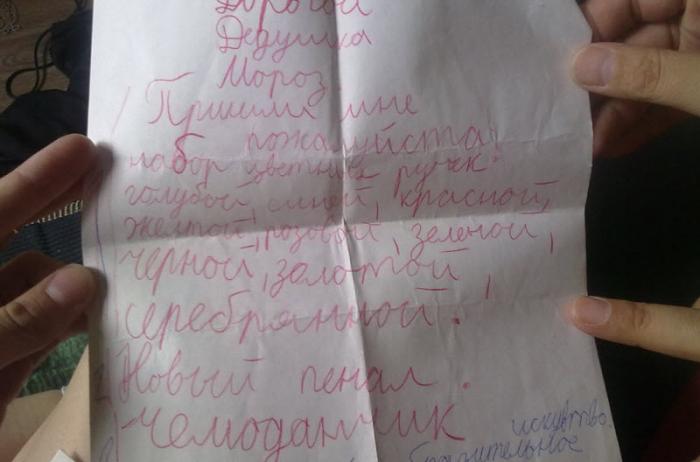 Дорогой
Дедушка
Мороз
Пришли мне
пожалуйста!
набор цветных ручк:
голубой, синей, красной,
желтой, розовой, зеленой,
черной, золотой,
серебрянной.
Новый пенал.
чемоданчик
искувство